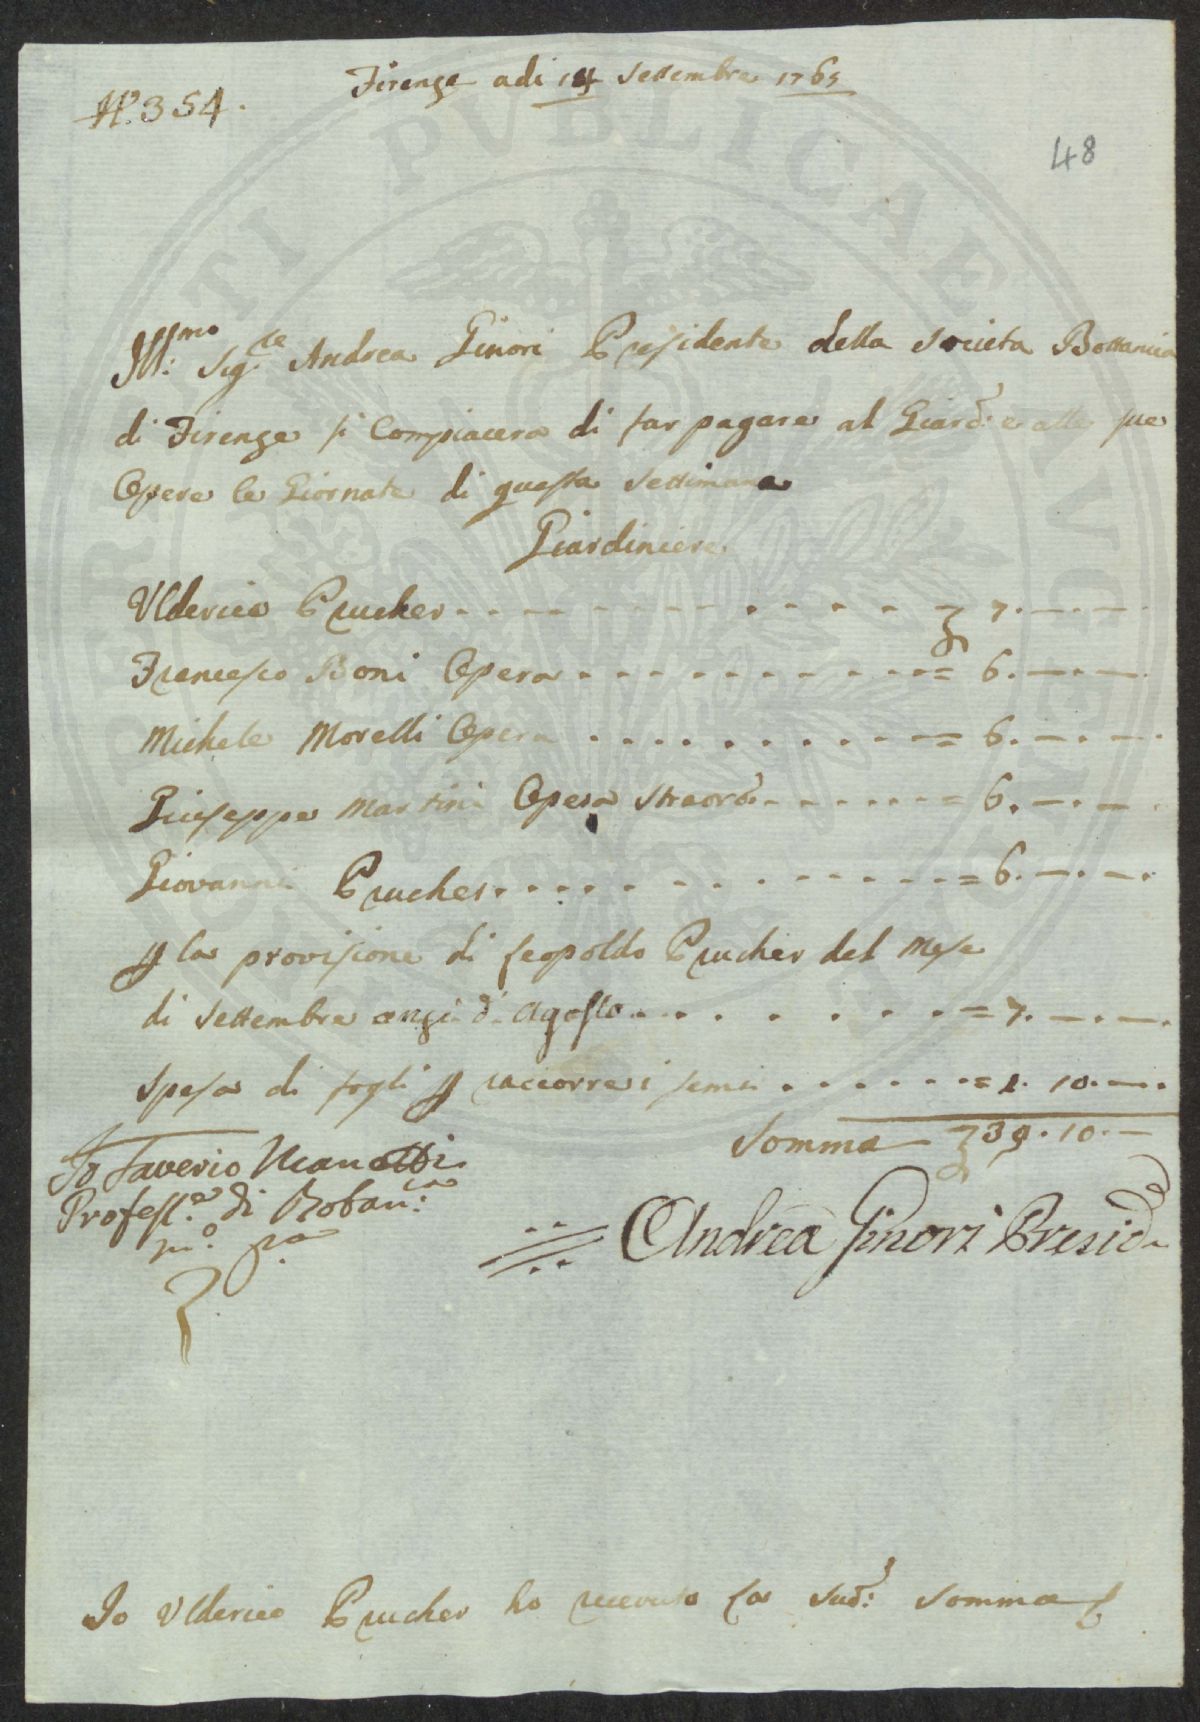 Firenze adi 14 Settembre 1765
N.° 354.
48
Ill:mo Sig:re Andrea Ginori Presidente della Società Bottanica
di Firenze si Compiacera di far pagare al Giard:e e alle sue
Opere le Giornate di questa Settimana
Giardiniere
Ulderico Prucher - - - - - - - - - - 7. — . —
Francesco Boni Opera - - - - - - - - - = 6. — . —
Michele Morelli Opera - - - - - - - - - = 6. — . —
Giuseppe Martini Opera Straord: - - - - - = 6. — . —
Giovanni Prucher - - - - - - - - - - = 6. — . —
p la provisione di Leopoldo Prucher del Mese
di Settembre anzi d' Agosto - - - - - - - = 7. — . —
Spesa di fogli p raccorre i semi - - - - - - = 1. 10. —
Somma 39. 10. —
Io Saverio Manetti
Profess:e di Botan:ca
m:o p:a
Andrea Ginori Presid:
Io Ulderico Prucher ho ricevuto la Sud: Somma